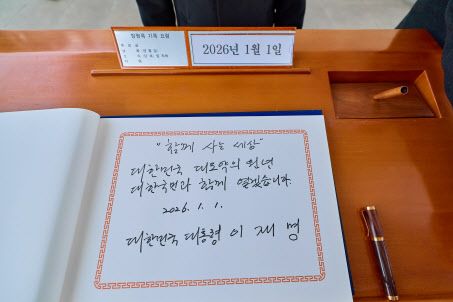 방명록 기록 요령
2026년 1월 1일
"함께 사는 세상"
대한민국 대도약의 원년
대한국민과 함께 열겠습니다.
2026. 1. 1.
대한민국 대통령 이 재 명